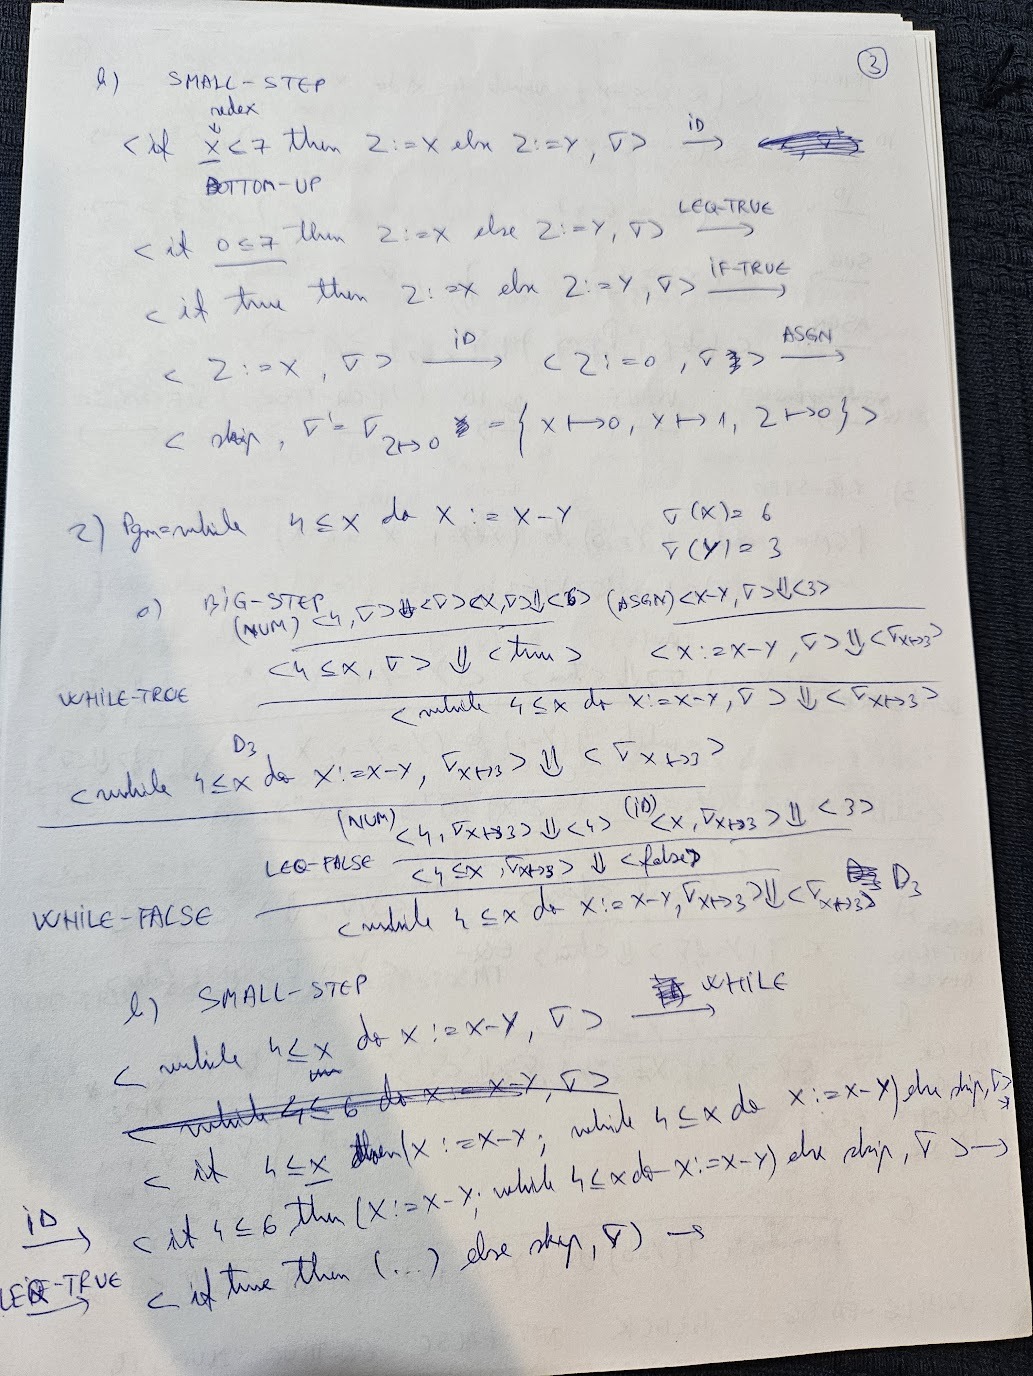 3
b) SMALL-STEP
redex
↓
<if X≤7 then Z:=X else Z:=Y, ∇> iD→
BOTTOM-UP
<if 0≤7 then Z:=X else Z:=Y, ∇> LEQ-TRUE→
<if true then Z:=X else Z:=Y, ∇> iF-TRUE→
<Z:=X, ∇> iD→ <Z:=0, ∇> ASGN→
<skip, ∇' = ∇Z↦0 = {X↦0, Y↦1, Z↦0}>
2) Pgm=while 4≤X do X:=X-Y ∇(X)=6
∇(Y)=3
a) BiG-STEP
(NUM) <4,∇>⇓<∇> <X,∇>⇓<6> (ASGN) <X-Y,∇>⇓<3>
<4≤X, ∇> ⇓ <true> <X:=X-Y, ∇>⇓<∇X↦3>
WHiLE-TRUE
<while 4≤X do X:=X-Y, ∇> ⇓ <∇X↦3>
D3
<while 4≤X do X:=X-Y, ∇X↦3> ⇓ <∇X↦3>
(NUM) <4, ∇X↦3> ⇓ <4> (iD) <X, ∇X↦3> ⇓ <3>
LEQ-FALSE <4≤X, ∇X↦3> ⇓ <false>
WHiLE-FALSE <while 4≤X do X:=X-Y, ∇X↦3> ⇓ <∇X↦3> D3
b) SMALL-STEP
<while 4≤X do X:=X-Y, ∇> WHiLE→
<while 4≤6 do X:=X-Y, ∇>
<if 4≤X then (X:=X-Y; while 4≤X do X:=X-Y) else skip, ∇> →
iD→ <if 4≤6 then (X:=X-Y; while 4≤X do X:=X-Y) else skip, ∇> →
LEQ-TRUE→ <if true then (...) else skip, ∇) →